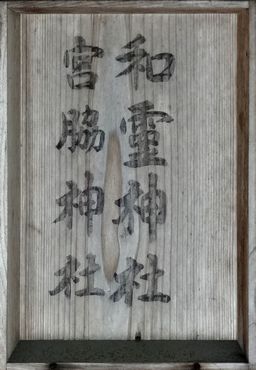 和霊神社
宮脇神社